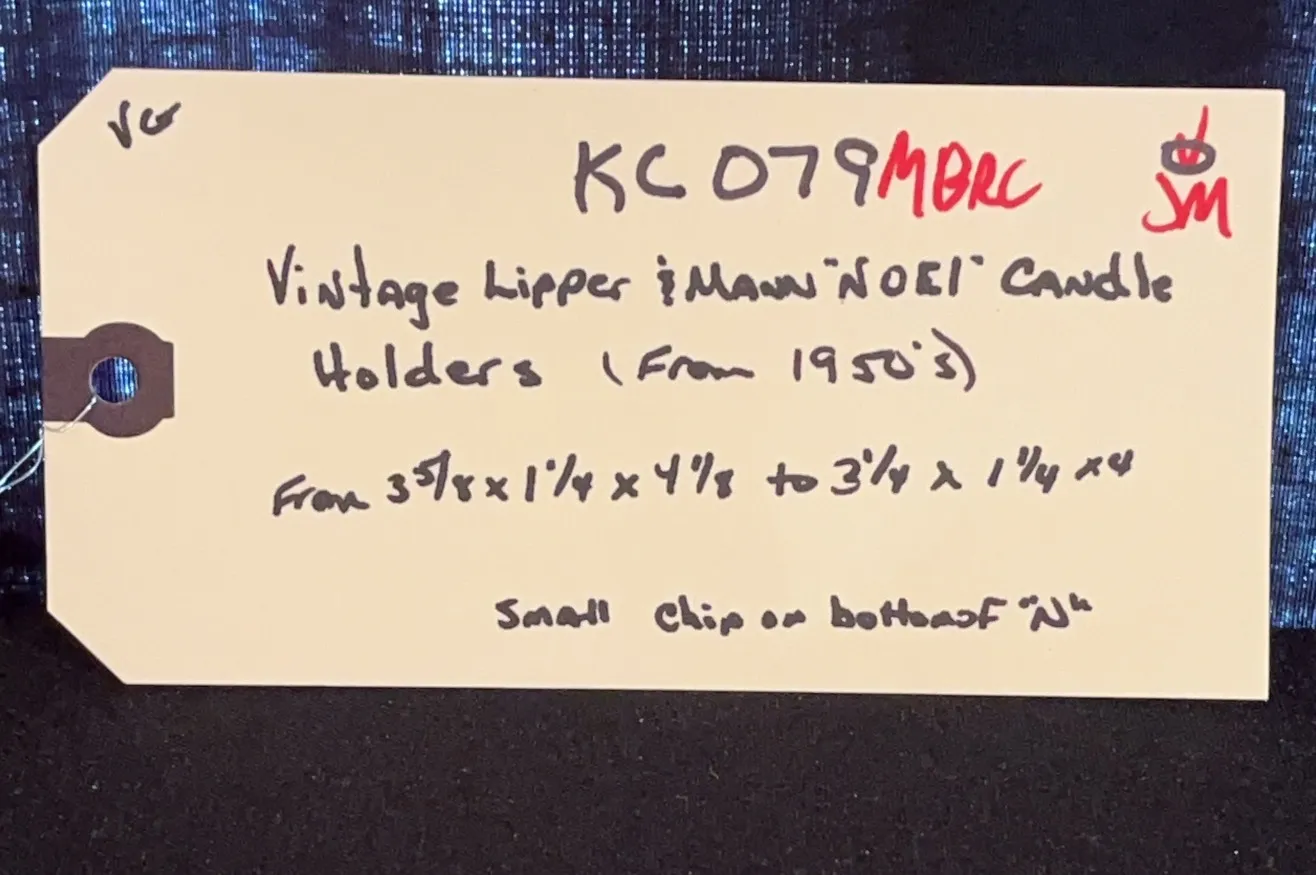 VG
KC079MBRC
JM
Vintage Lipper & Mann "NOEl" Candle
Holders (From 1950's)
From 3 5/8 x 1 1/4 x 4 1/8 to 3 1/4 x 1 1/4 x 4
Small chip on bottom of "N"